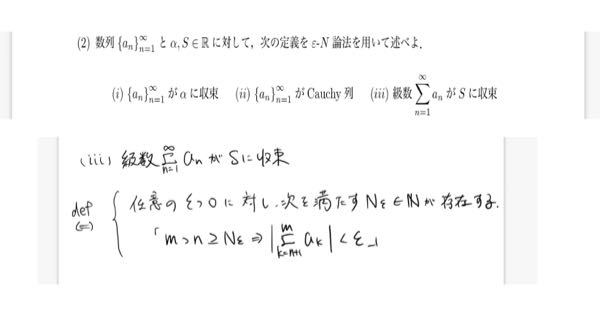 (2) 数列 {a_n}_{n=1}^∞ と α, S ∈ ℝ に対して，次の定義を ε-N 論法を用いて述べよ．
(i) {a_n}_{n=1}^∞ が α に収束 (ii) {a_n}_{n=1}^∞ が Cauchy 列 (iii) 級数 ∑_{n=1}^∞ a_n が S に収束
(iii) 級数 ∑_{n=1}^∞ a_n が S に収束
def (⇔) { 任意の ε>0 に対し、次を満たす N_ε ∈ ℕ が存在する.
「m>n≥N_ε ⇒ |∑_{k=n+1}^m a_k| < ε」